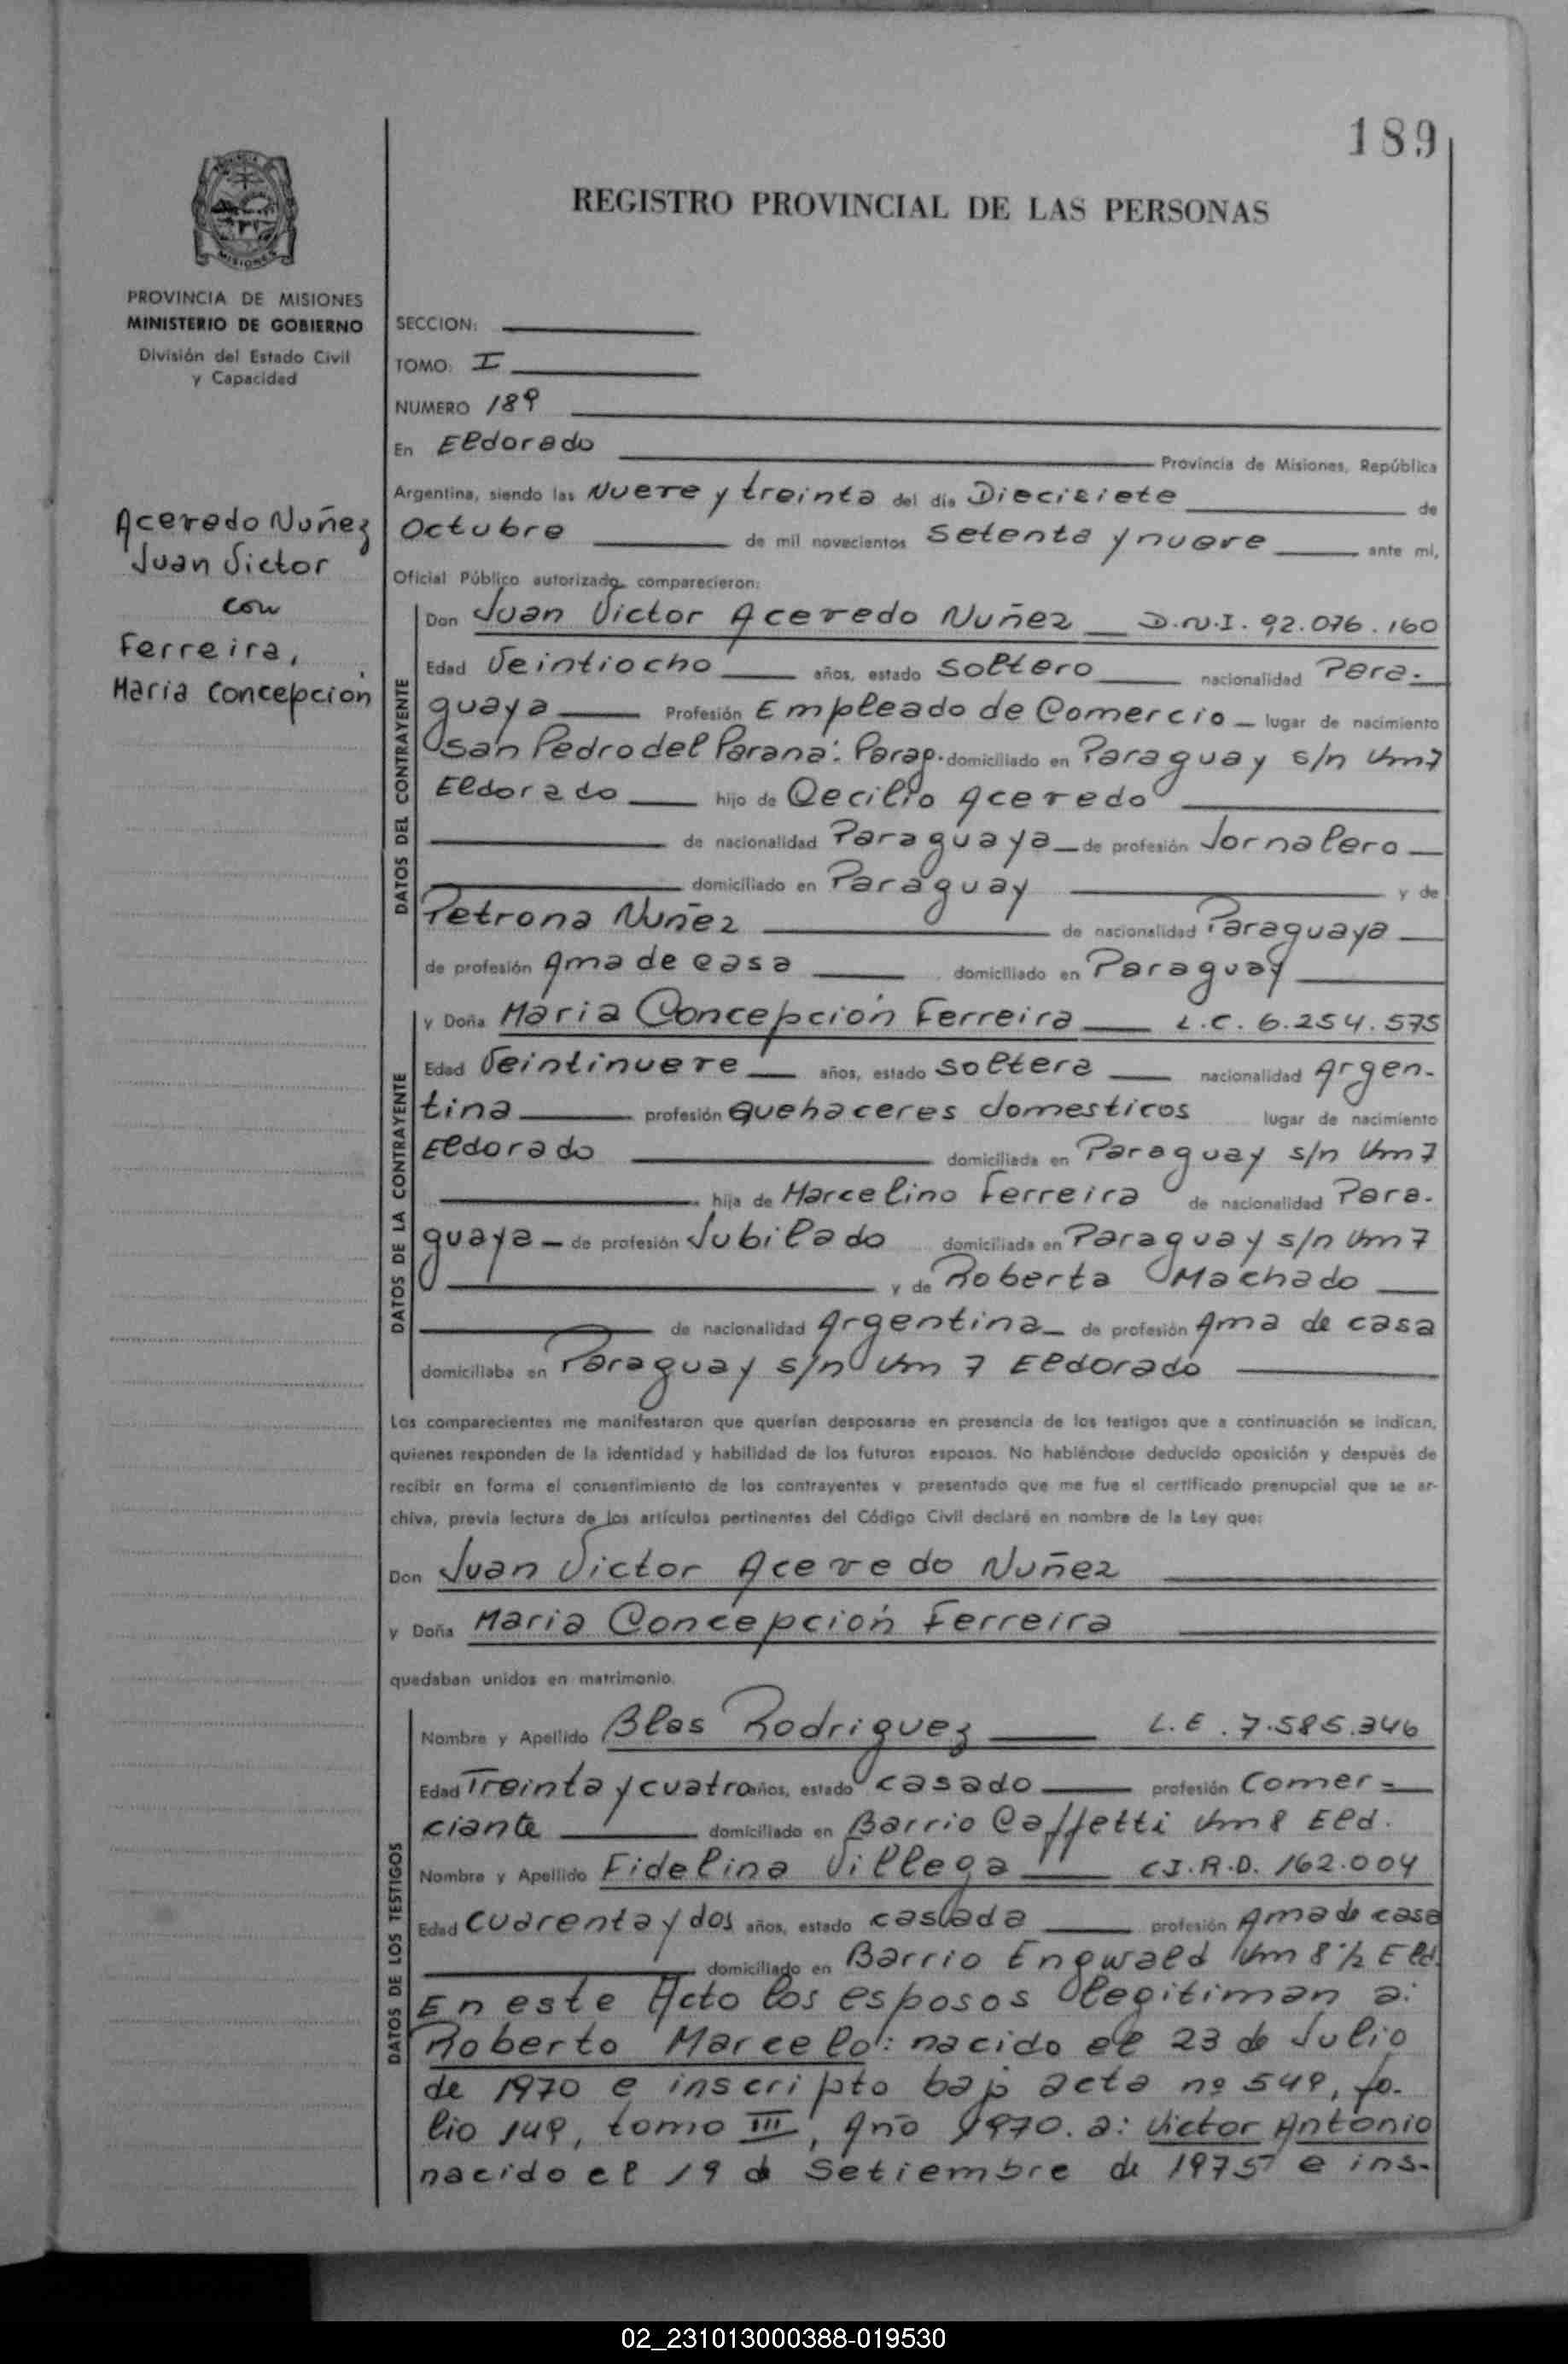 189
REGISTRO PROVINCIAL DE LAS PERSONAS
PROVINCIA DE MISIONES
MINISTERIO DE GOBIERNO
División del Estado Civil
y Capacidad
Acevedo Nuñez
Juan Victor
con
Ferreira,
Maria Concepción
SECCION:
TOMO: I
NUMERO 189
En Eldorado Provincia de Misiones, República
Argentina, siendo las Nueve y treinta del día Diecisiete de
Octubre de mil novecientos Setenta y nueve ante mí,
Oficial Público autorizado comparecieron:
DATOS DEL CONTRAYENTE
Don Juan Victor Acevedo Nuñez D.N.I. 92.076.160
Edad Veintiocho años, estado Soltero nacionalidad Para-
guaya Profesión Empleado de Comercio lugar de nacimiento
San Pedro del Parana: Parag. domiciliado en Paraguay s/n Km 7
Eldorado hijo de Cecilio Acevedo
de nacionalidad Paraguaya de profesión Jornalero
domiciliado en Paraguay y de
Petrona Nuñez de nacionalidad Paraguaya
de profesión Ama de casa domiciliado en Paraguay
DATOS DE LA CONTRAYENTE
y Doña Maria Concepción Ferreira L.C. 6.254.575
Edad Veintinueve años, estado Soltera nacionalidad Argen-
tina profesión quehaceres domesticos lugar de nacimiento
Eldorado domiciliada en Paraguay s/n Km 7
hija de Marcelino Ferreira de nacionalidad Para-
guaya de profesión Jubilado domiciliada en Paraguay s/n Km 7
y de Roberta Machado
de nacionalidad Argentina de profesión Ama de casa
domiciliaba en Paraguay s/n Km 7 Eldorado
Los comparecientes me manifestaron que querían desposarse en presencia de los testigos que a continuación se indican,
quienes responden de la identidad y habilidad de los futuros esposos. No habiéndose deducido oposición y después de
recibir en forma el consentimiento de los contrayentes y presentado que me fue el certificado prenupcial que se ar-
chiva, previa lectura de los artículos pertinentes del Código Civil declaré en nombre de la Ley que:
Don Juan Victor Acevedo Nuñez
y Doña Maria Concepción Ferreira
quedaban unidos en matrimonio.
DATOS DE LOS TESTIGOS
Nombre y Apellido Blas Rodriguez L.E. 7.585.346
Edad Treinta y cuatro años, estado casado profesión Comer-
ciante domiciliado en Barrio Caffetti Km 8 Eld.
Nombre y Apellido Fidelina Villega C.I.R.D. 162.004
Edad Cuarenta y dos años, estado casada profesión Ama de casa
domiciliado en Barrio Engwald Km 8 1/2 Eld.
En este Acto los esposos legitiman a:
Roberto Marcelo: nacido el 23 de Julio
de 1970 e inscripto bajo acta nº 549, fo-
lio 149, tomo III, Año 1970. a: Victor Antonio
nacido el 19 de Setiembre de 1975 e ins-
02_231013000388-019530